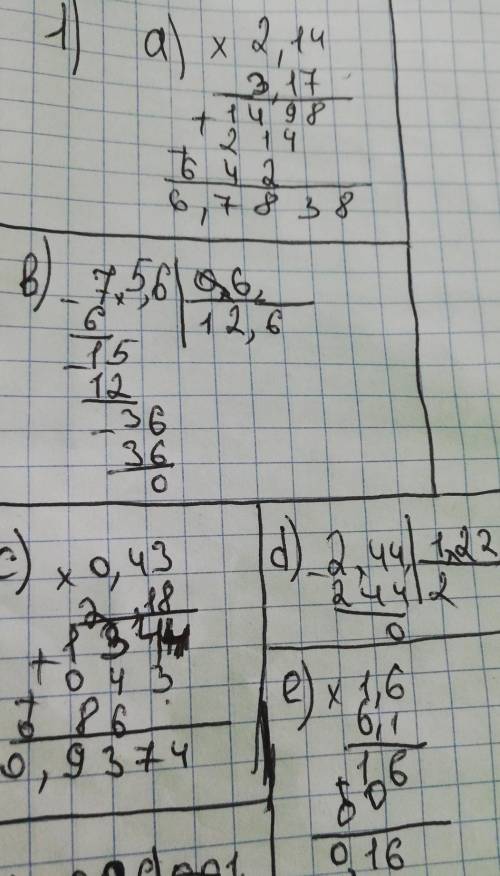 1) a) × 2,14
3,17
+ 1 4 9 8
2 1 4
+ 6 4 2
6,7 8 3 8
b) - 7,5,6 | 0,6,
6 | 12,6
- 15
12
- 36
36
0
c) × 0,43
2,18
+ 1 3 4 4
0 4 3
+ 8 6
0,9 3 7 4
d) - 2,44, | 1,22
2 44 | 2
0
e) × 1,6
6,1
1 6
0 0
0,16